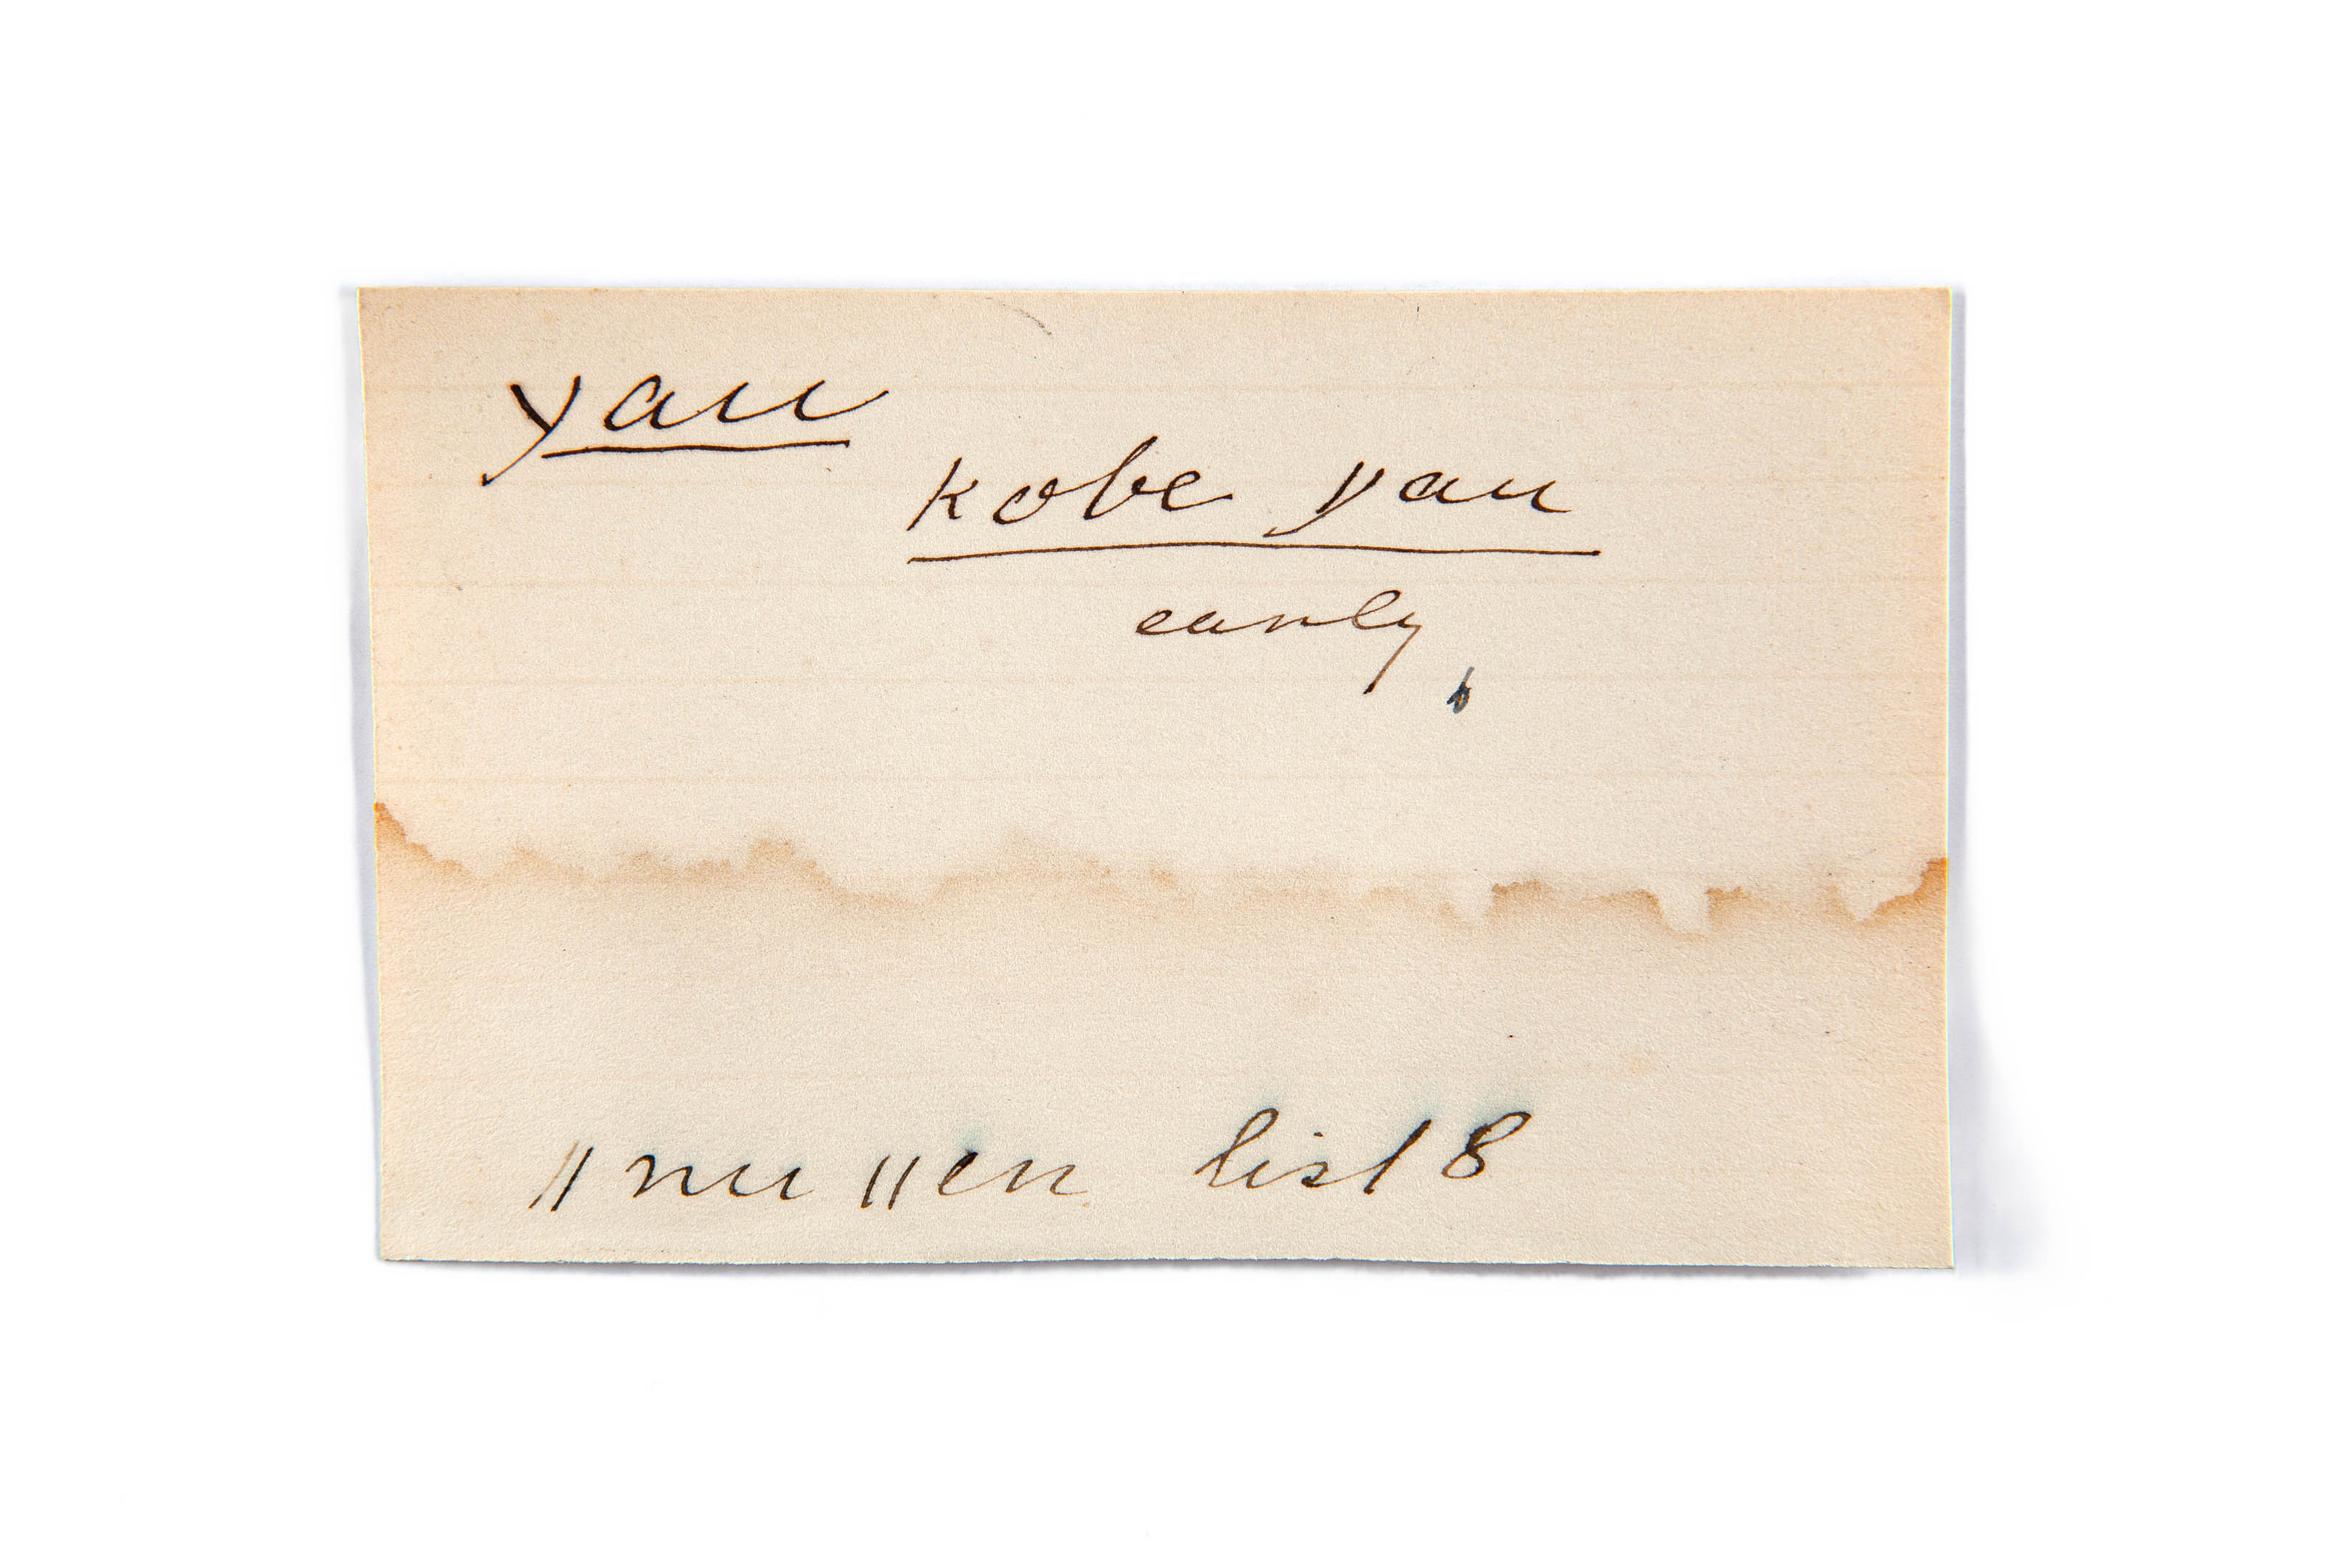 yau
kobe yau
early
"nu"en list 8